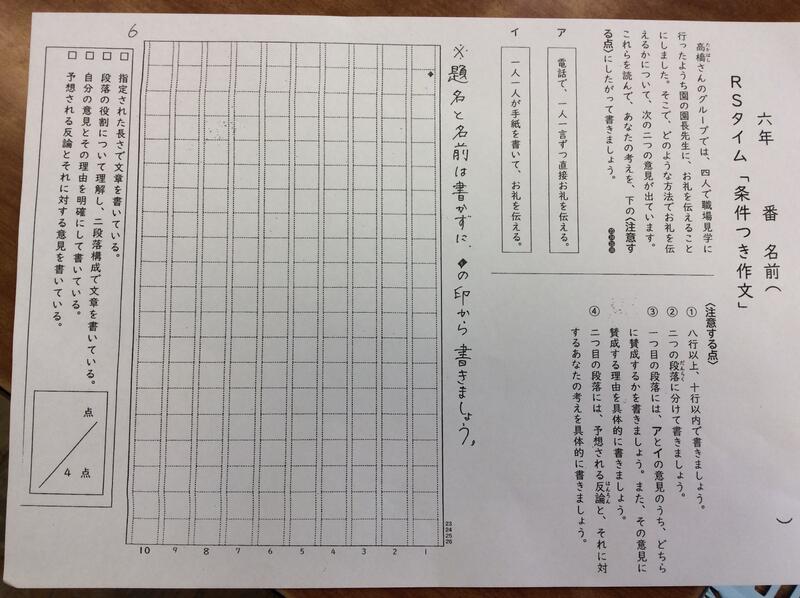 六年　　番　名前（　　　　　）
RSタイム「条件つき作文」
高橋さんのグループでは、四人で職場見学に
たかはし
行ったようち園の園長先生に、お礼を伝えること
にしました。そこで、どのような方法でお礼を伝
えるかについて、次の二つの意見が出ています。
これらを読んで、あなたの考えを、下の〈注意す
る点〉にしたがって書きましょう。
ア
電話で、一人一言ずつ直接お礼を伝える。
イ
一人一人が手紙を書いて、お礼を伝える。
〈注意する点〉
① 八行以上、十行以内で書きましょう。
② 二つの段落に分けて書きましょう。
だんらく
③ 一つ目の段落には、アとイの意見のうち、どちら
に賛成するかを書きましょう。また、その意見に
賛成する理由を具体的に書きましょう。
④ 二つ目の段落には、予想される反論と、それに対
はんろん
するあなたの考えを具体的に書きましょう。
※題名と名前は書かずに、◆の印から書きましょう。
◆
23
24
25
26
1
2
3
4
5
6
7
8
9
10
6
□ 指定された長さで文章を書いている。
□ 段落の役割について理解し、二段落構成で文章を書いている。
□ 自分の意見とその理由を明確にして書いている。
□ 予想される反論とそれに対する意見を書いている。
点
4点